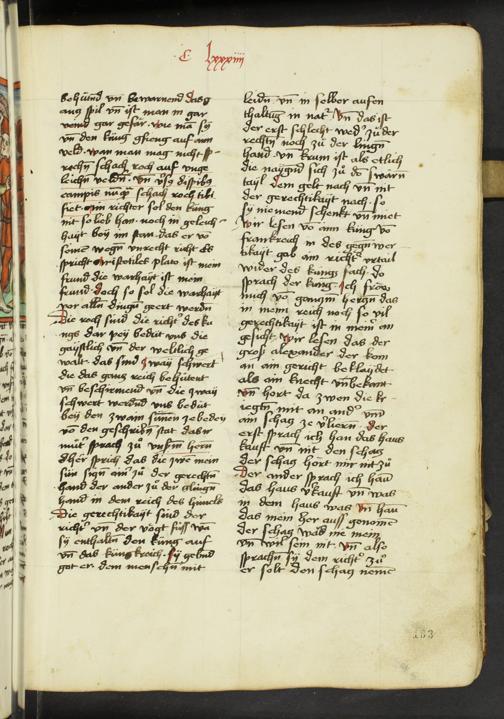 C lxxxiiii
behütind vn̄ bewarnend das
ang spil vn̄ ist man in gar
vn̄ den küng
veld. wan man mag nicht sp
rechn̄ schach roch auf
schach roch
richter sol den küng
nit so lieb han noch in
haÿt beÿ im stan das er vō
seinē wegn̄ vnrecht richt Es
spricht Aristotiles plato ist mein
frund die warhaÿt ist mein
frund doch so sol die warhaÿt
vor alln̄ dingn̄ geert werdn̄
Die roch sind die richtˀ des kü
ngs dar beÿ bedüt vns die
gaÿstlich vn̄ der weltlich ge
walt das sind zwaÿ schwert
die das ganz reich behütent
vn̄ beschirmend vn̄ die zwaÿ
schwert werdnd vns bedüt
beÿ den zwain sünen zebedeÿ
vō den geschribn̄ stat das ir
müt sprach zu vnsern̄ hern
Her sprich das die zwe mein
sün siczn ainˀ zu der gerechtn̄
hand der ander zu der
hand in dem reich des himels
Die gerechtikaÿt sind der
richtˀ vn̄ der vogt füss wā
sÿ enthaltn̄ den küng auf
vn̄ das küngkreich. Sÿ gebnd
got er dem menschn̄ mit
leidn̄ vn̄ in selber aufen
thaltug in natˀ vn̄ das ist
der erst schlecht wedˀ zu der
rechtn̄ noch zu der lingn̄
hand vn̄ krum ist als etlich
die naÿgnd sich zu dē
taÿl dem gelt nach vn̄ nit
der gerechtikaÿt nach so
sÿ niemend schenkt vn̄ miet
Wir lesen vō ainē küng vō
frankreich in des gegnwer
tikaÿt gab ain richtˀ vrtail
wider des küngs sach do
sprach der küng ich frow
mich vō ganczm herczn̄ das
in meim reich noch so vil
gerechtikaÿt ist in meinē an
gesicht wir lesen das der
groß alexander der kom
an ain gericht beklaÿdet
als ain knecht vnbekant
vn̄ hort da zwen die kr
iegtn̄ mit an andˀ vm̄
ain schaz ze
erst sprach ich han das haus
kauft vn̄ nit den schaz
der schaz hort mir nit zu
Der ander sprach ich han
das haus vkauft vn̄ was
in dem haus was vn̄ han
das mein her auss genomē
der schaz was nie mein
vn̄ wil sein nit vn̄ also
sprachn̄ sÿ dem richtˀ zu
er solt den schaz nemē
183